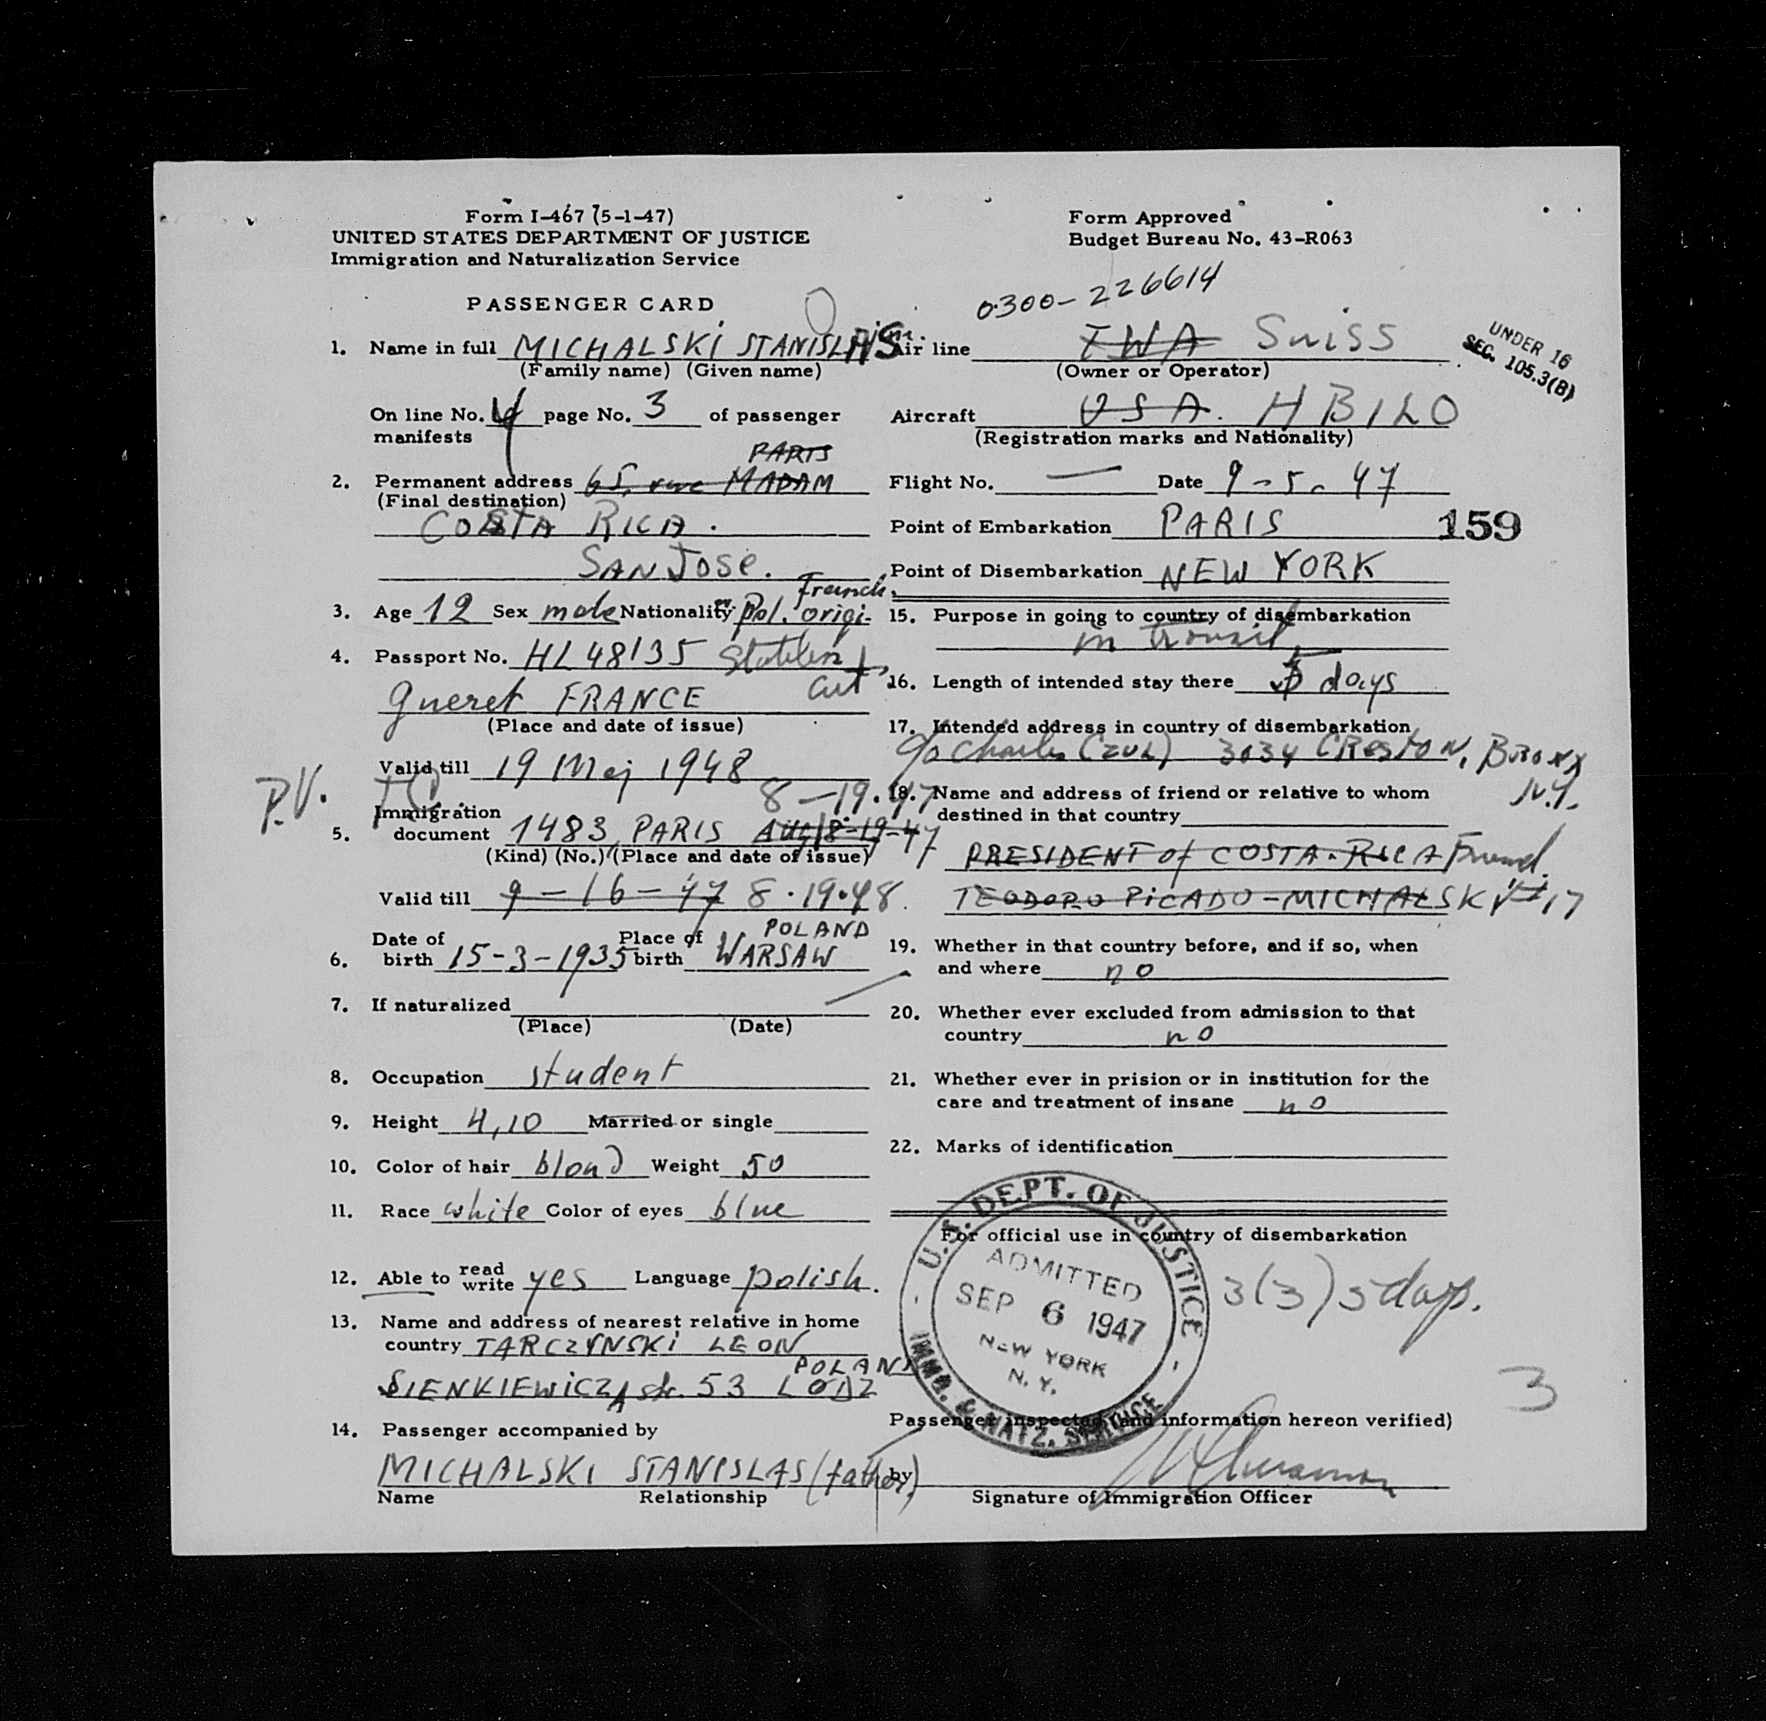 Form I-467 (5-1-47)
UNITED STATES DEPARTMENT OF JUSTICE
Immigration and Naturalization Service
Form Approved
Budget Bureau No. 43-R063
PASSENGER CARD
0300-226614
1. Name in full MICHALSKI STANISLAS
(Family name) (Given name)
On line No. 4 page No. 3 of passenger
manifests
PARIS
2. Permanent address 65, rue MADAM
(Final destination)
COSTA RICA.
SAN JOSE.
French
3. Age 12 Sex male Nationality pol. origi-
4. Passport No. HL 48135
gueret FRANCE
(Place and date of issue)
Valid till 19 Maj 1948
P.V.
8-19.47
Immigration
5. document 1483 PARIS AUG 8-19-47
(Kind) (No.) (Place and date of issue)
Valid till 9-16-47 8.19.48.
POLAND
6. Date of birth 15-3-1935 Place of birth WARSAW
7. If naturalized
(Place) (Date)
8. Occupation student
9. Height 4,10 Married or single
10. Color of hair blond Weight 50
11. Race white Color of eyes blue
12. Able to read write yes Language polish.
13. Name and address of nearest relative in home
country TARCZYNSKI LEON
POLAND
SIENKIEWICZA str. 53 LODZ
14. Passenger accompanied by
MICHALSKI STANISLAS (father)
Name Relationship
Air line TWA Swiss
(Owner or Operator)
UNDER 16
SEC. 105.3(B)
Aircraft USA. HBILO
(Registration marks and Nationality)
Flight No. — Date 9-5-47
Point of Embarkation PARIS
159
Point of Disembarkation NEW YORK
15. Purpose in going to country of disembarkation
in transit
16. Length of intended stay there 5 days
17. Intended address in country of disembarkation
c/o Charles 3034 CRESTON, Bronx
N.Y.
18. Name and address of friend or relative to whom
destined in that country
PRESIDENT of COSTA-RICA Friend
TEODORO PICADO-MICHALSKI #17
19. Whether in that country before, and if so, when
and where no
20. Whether ever excluded from admission to that
country no
21. Whether ever in prision or in institution for the
care and treatment of insane no
22. Marks of identification
For official use in country of disembarkation
U.S. DEPT. OF JUSTICE
ADMITTED
SEP 6 1947
NEW YORK
N. Y.
IMMG. & NATZ. SERVICE
3(3) 5 days.
3
Passenger inspected (and information hereon verified)
by
Signature of Immigration Officer